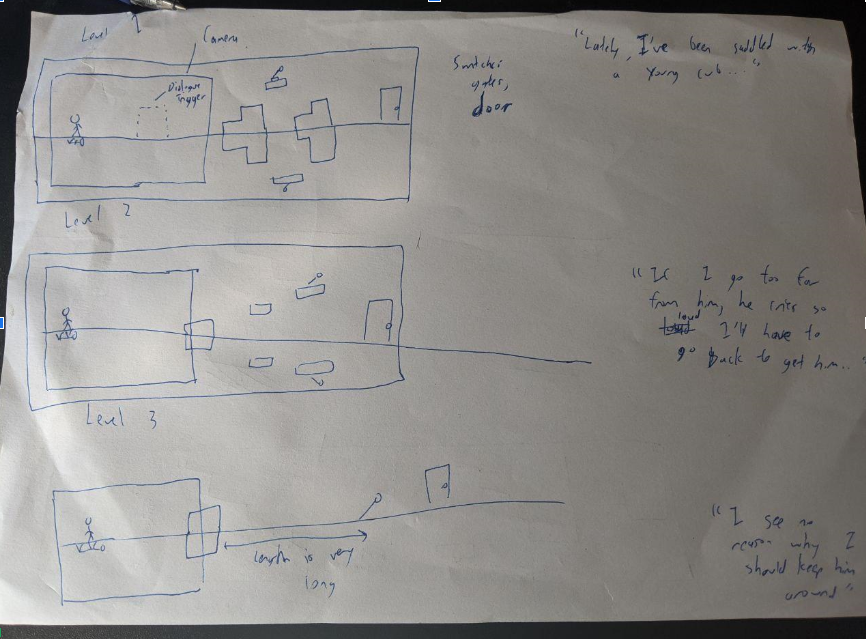 Level 1
Camera
Dialogue
Trigger
Switches
gates,
door
"Lately, I've been saddled with
a young cub..."
Level 2
"If I go too far
from him, he cries so
loud I'll have to
go back to get him...
Level 3
Length is very
long
"I see no
reason why I
should keep him
around"